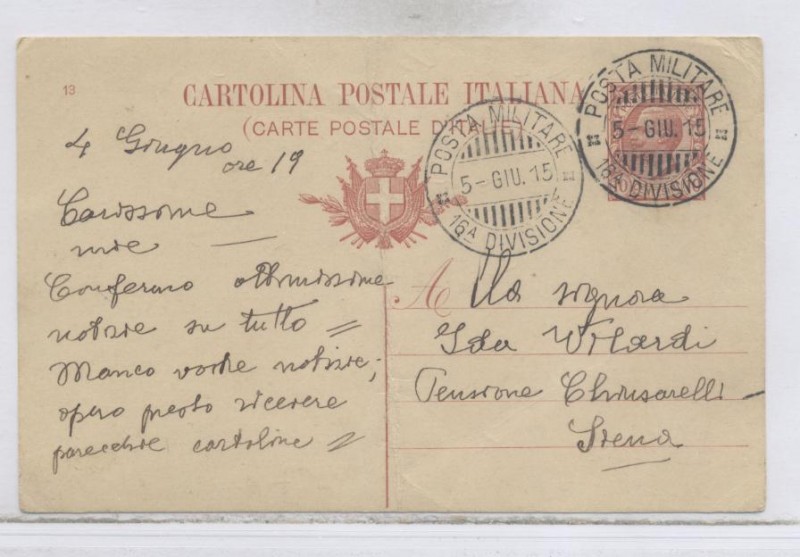 13
CARTOLINA POSTALE ITALIANA
(CARTE POSTALE D'ITALIE)
POSTA MILITARE
5-GIU.15
16A DIVISIONE
POSTA MILITARE
5-GIU.15
16A DIVISIONE
4 Giugno
ore 19
Carissime
mie
Confermo ottimissime
notizie su tutto =
Manco vostre notizie;
spero presto ricevere
parecchie cartoline =
Alla signora
Ida Vilardi
Pensione Chiusarelli
Siena